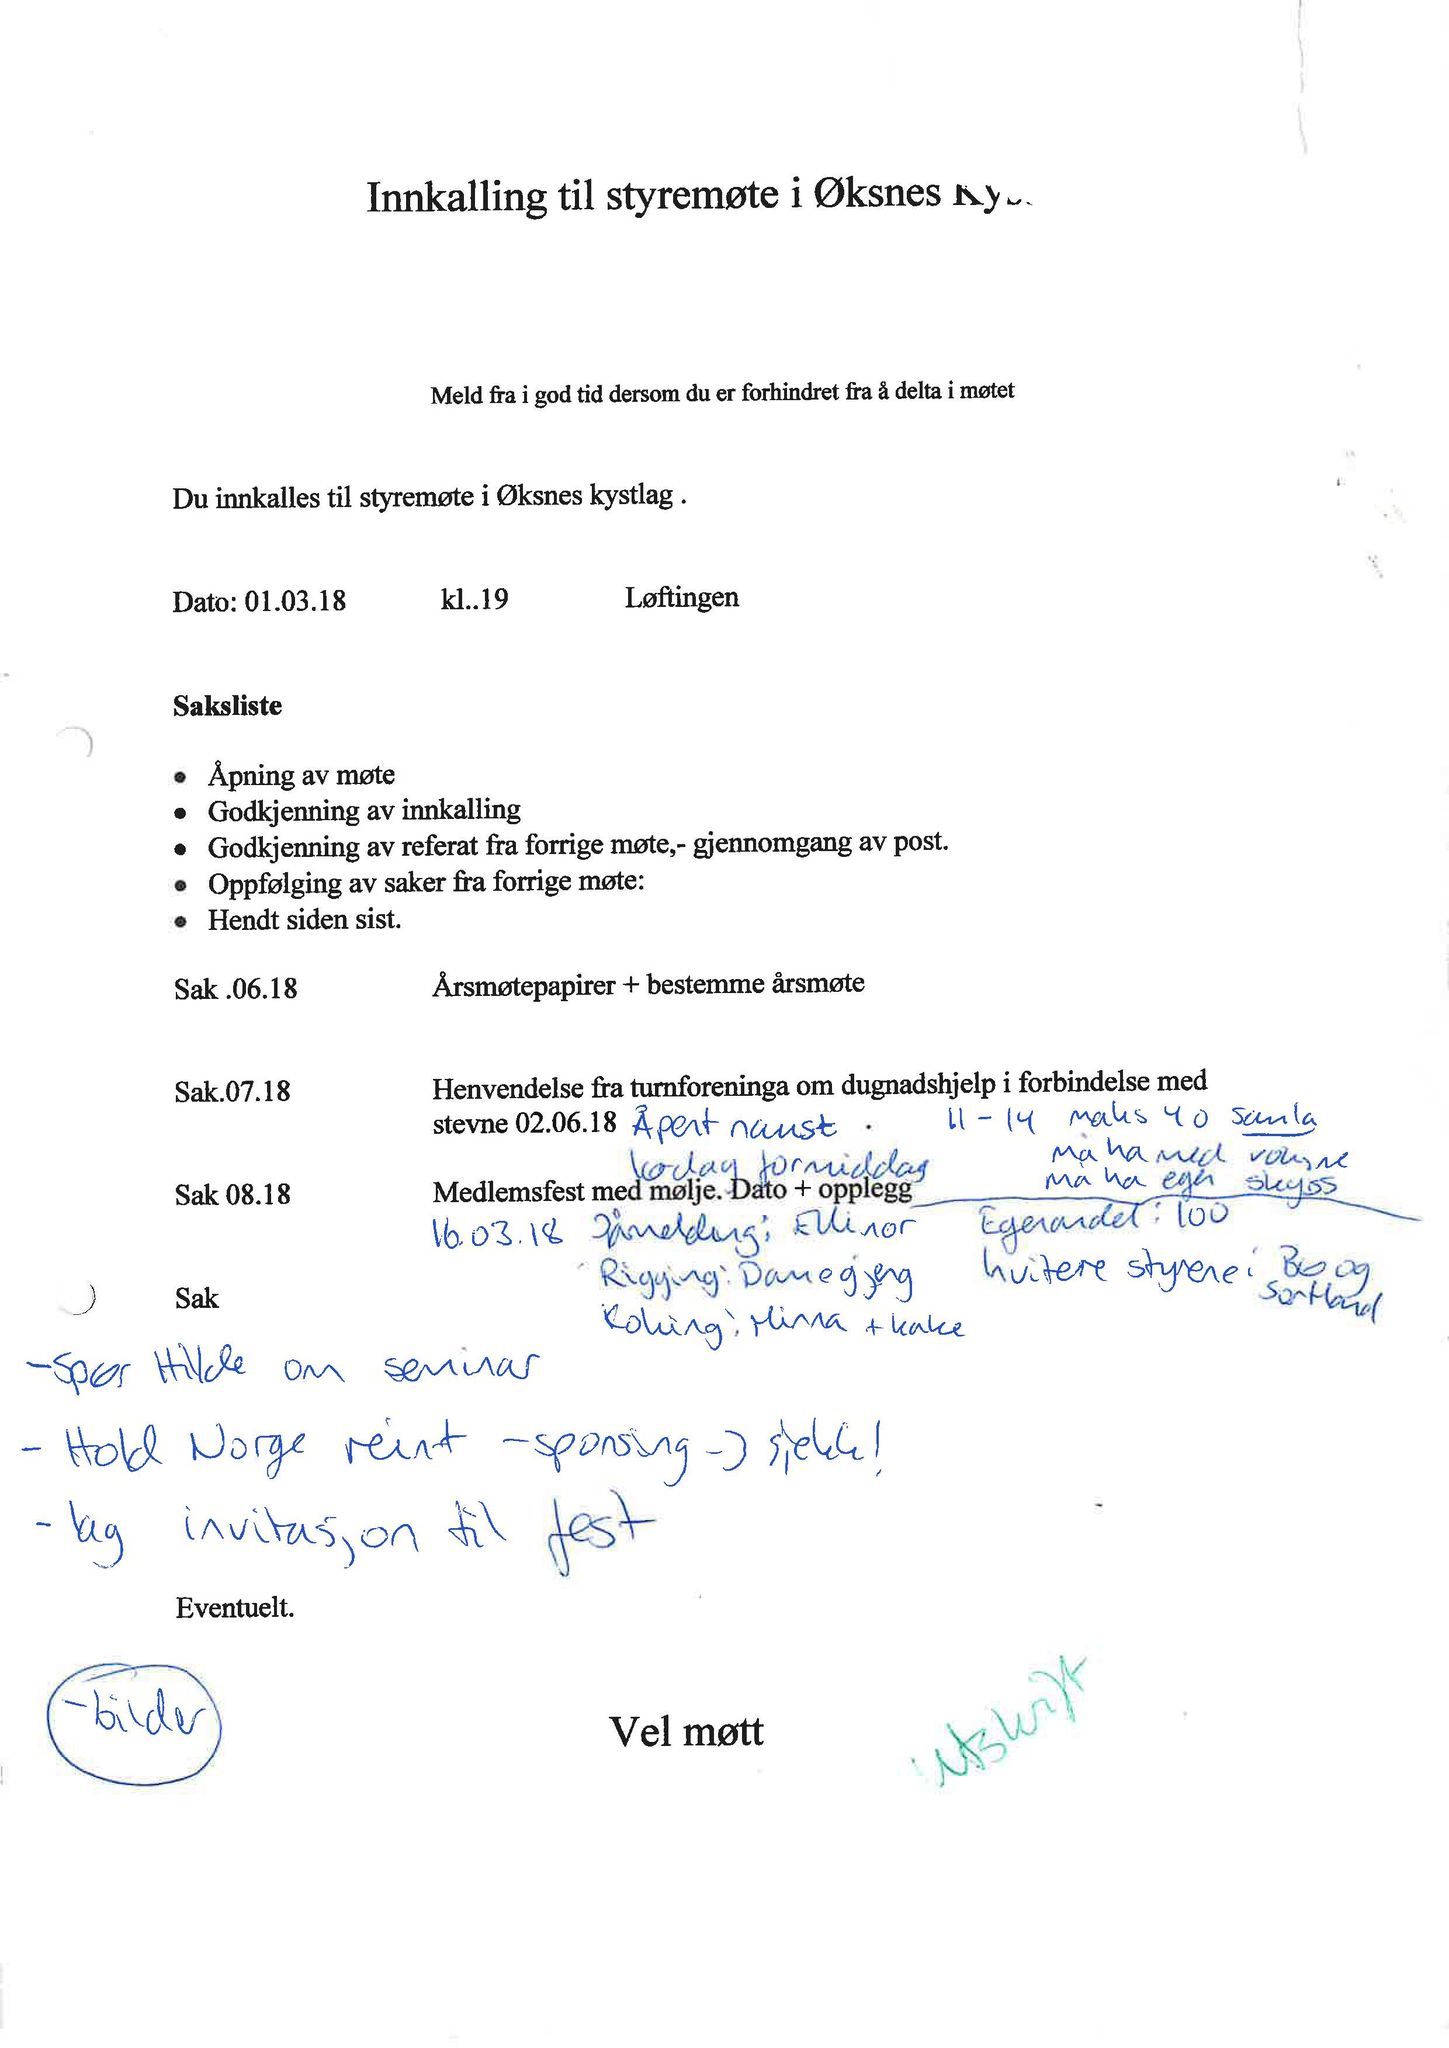 Innkalling til styremøte i Øksnes Ky
Meld fra i god tid dersom du er forhindret fra å delta i møtet
Du innkalles til styremøte i Øksnes kystlag .
Dato: 01.03.18 kl..19 Løftingen
Saksliste
• Åpning av møte
• Godkjenning av innkalling
• Godkjenning av referat fra forrige møte,- gjennomgang av post.
• Oppfølging av saker fra forrige møte:
• Hendt siden sist.
Sak .06.18 Årsmøtepapirer + bestemme årsmøte
Sak.07.18 Henvendelse fra turnforeninga om dugnadshjelp i forbindelse med
stevne 02.06.18 Åpent naust . 11 - 14 maks 40 samla
lørdag formiddag må ha med voksne
må ha egen skyss
Sak 08.18 Medlemsfest med mølje. Dato + opplegg
16.03.18 Påmelding: Ellinor Egenandel: 100
Rigging: Damegjeng Invitere styrene i Bø og
Sortland
Koking: Minna + kake
Sak
- Spør Hilde om seminar
- Hold Norge reint - sponsing -> sjekk!
- lag invitasjon til fest
Eventuelt.
- bilder
Vel møtt
Utskrift